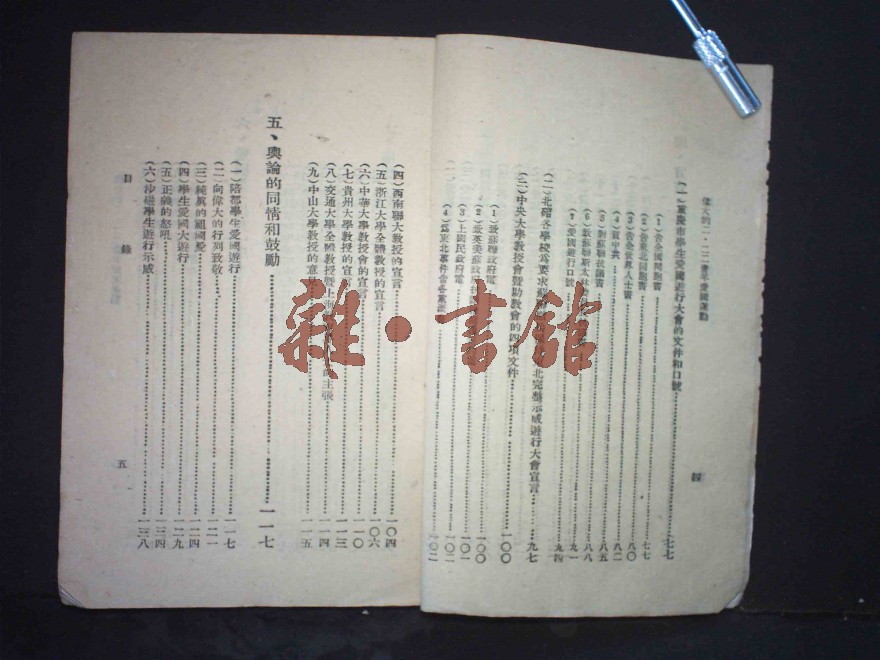 偉大的二·二二青年愛國運動
(一)重慶市學生愛國遊行大會的文件和口號……七七
(1)告全國同胞書……七七
(2)告東北同胞書……八〇
(3)告全世界人士書……八二
(4)質中共……八五
(5)對蘇聯抗議書……八八
(6)致蘇聯斯太林……九一
(7)愛國遊行口號……九四
(二)北碚各學校為要求……北完整示威遊行大會宣言……九七
(三)中央大學教授會暨助教會的四項文件……一〇〇
(1)致蘇聯政府電……一〇〇
(2)致英美蘇政府……一〇一
(3)上國民政府電……一〇二
(4)為東北事件告各黨派……一〇二
四
(四)西南聯大教授的宣言……一〇四
(五)浙江大學全體教授的宣言……一〇六
(六)中華大學教授會的宣言……一一〇
(七)貴州大學教授的宣言……一一三
(八)交通大學全體教授暨上海……主張……一一四
(九)中山大學教授的意見……一一五
五、輿論的同情和鼓勵……一一七
(一)陪都學生愛國遊行……一一七
(二)向偉大的行列致敬……一二一
(三)純真的祖國愛……一二四
(四)學生愛國大遊行……一二九
(五)正義的怒吼……一三四
(六)沙磁學生遊行示威……一三八
目錄
五
雜·書館